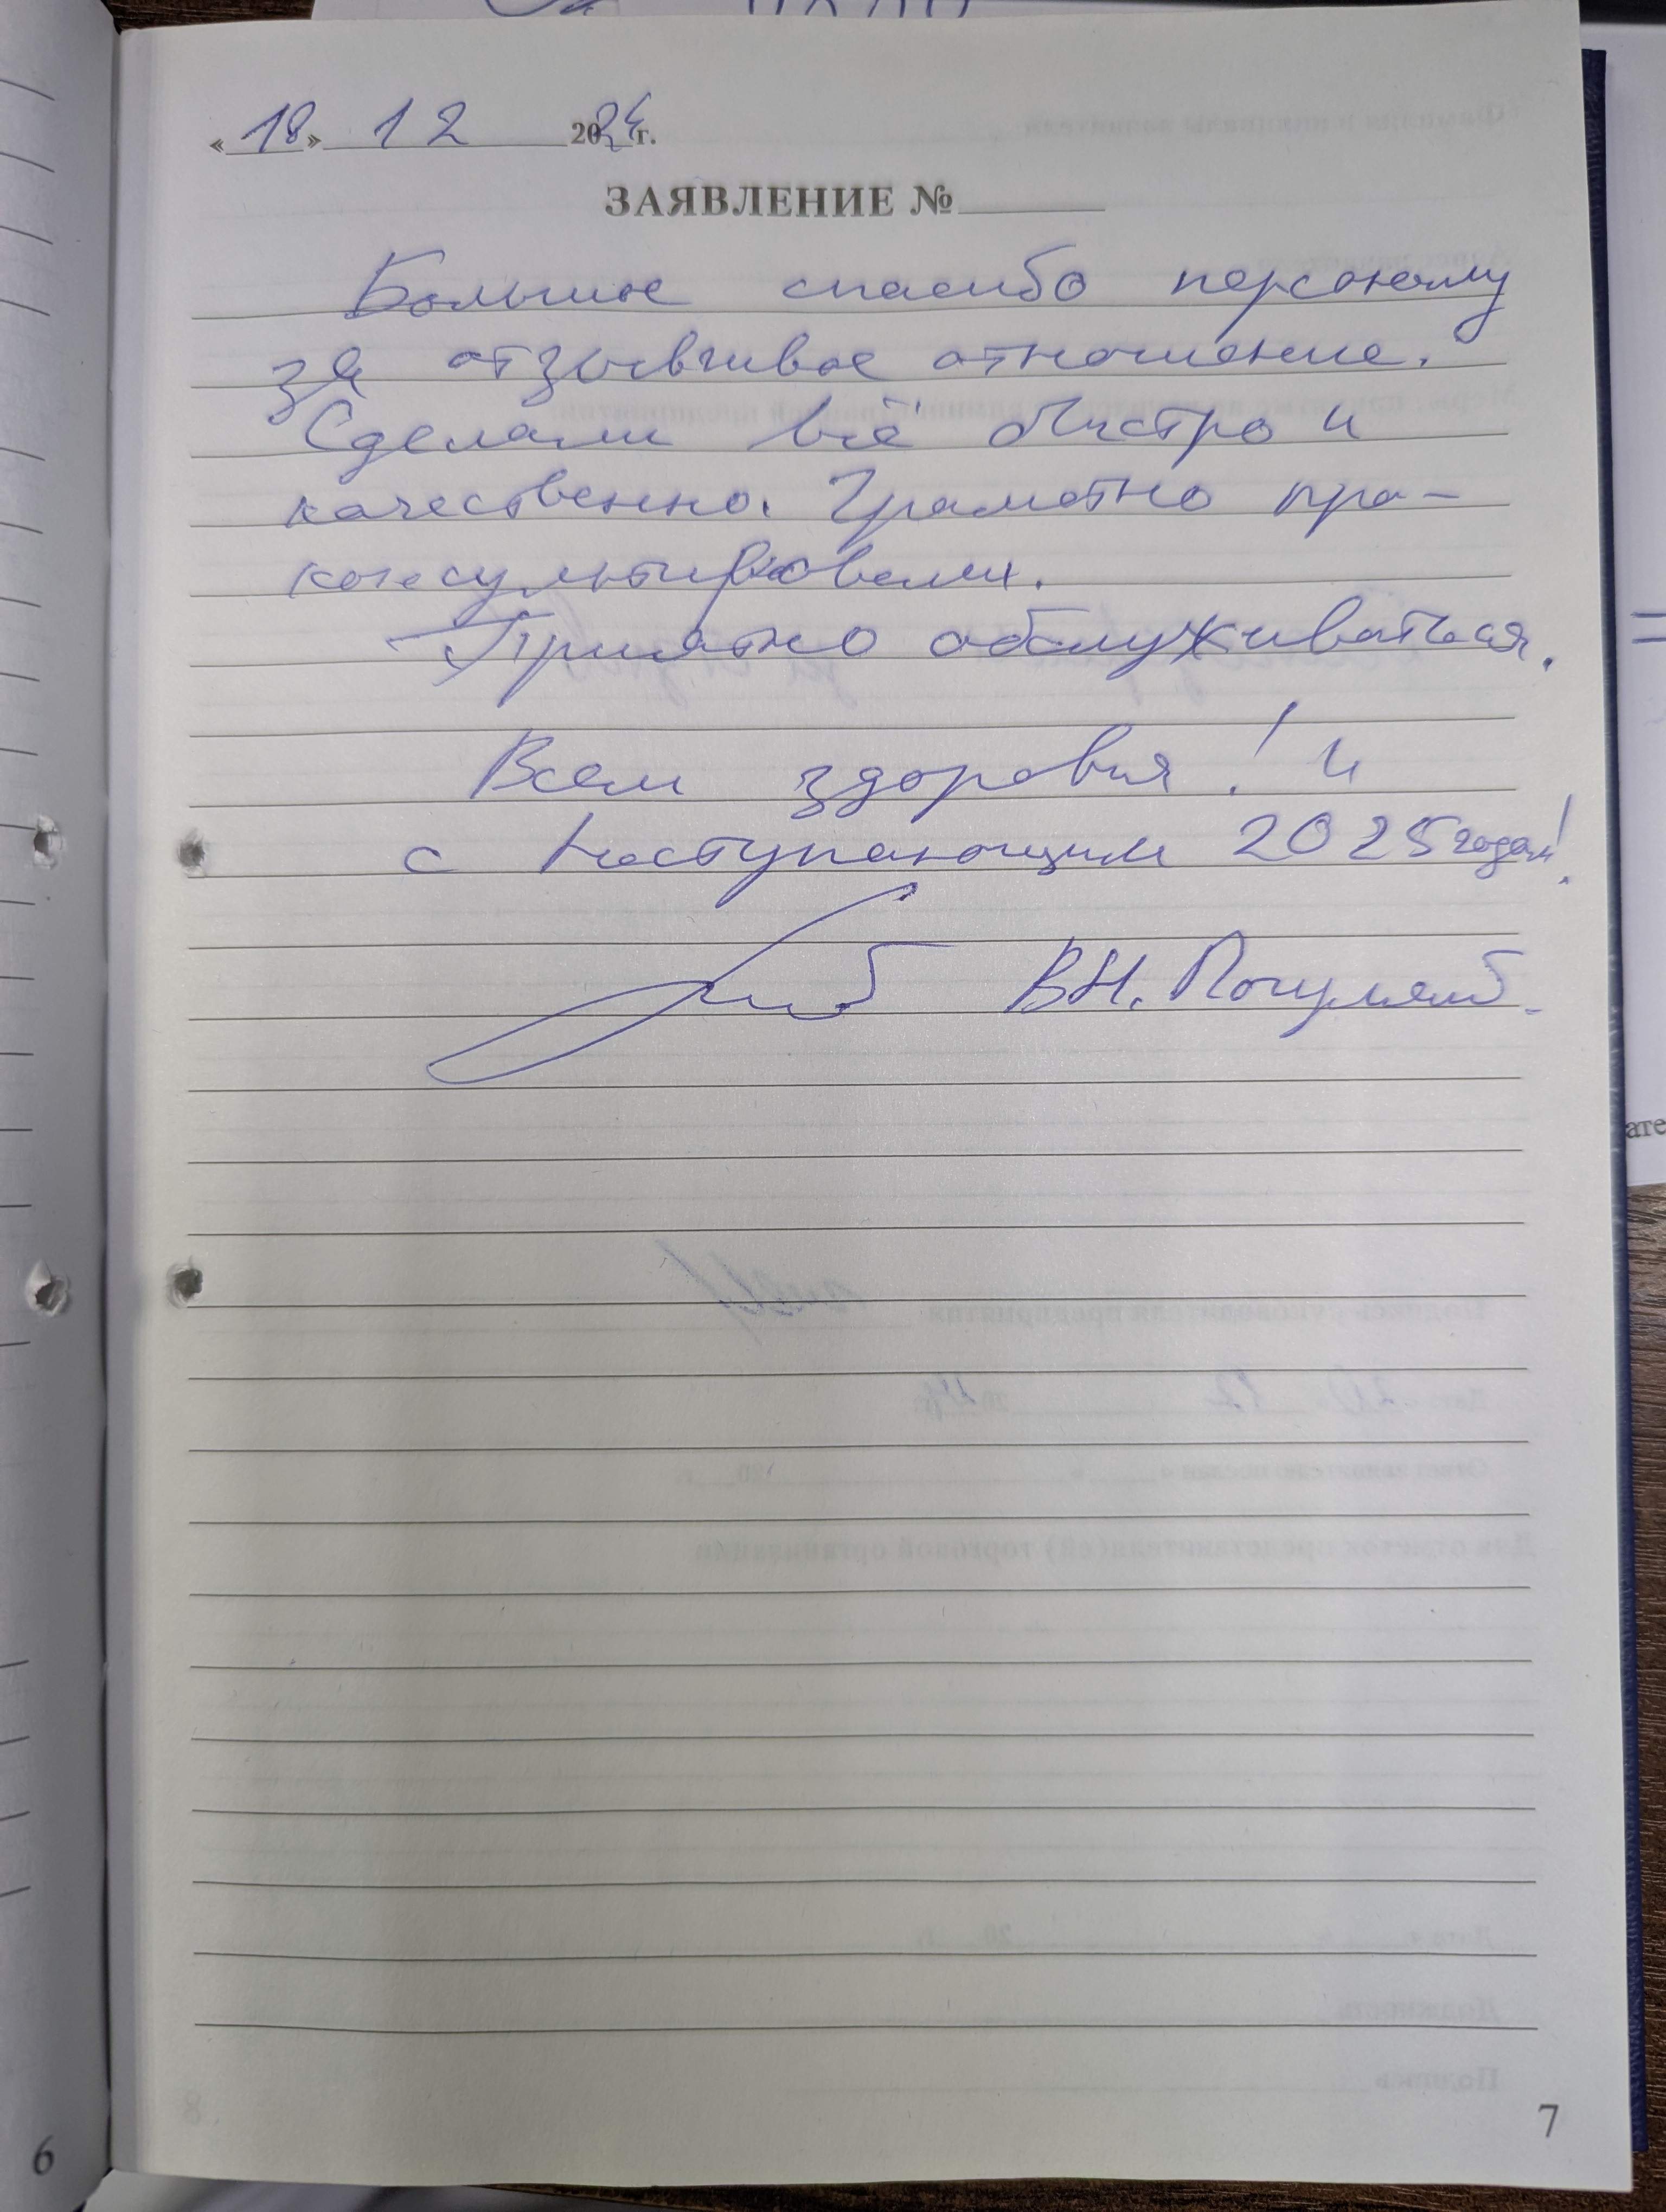 «18» 12 2024г.
ЗАЯВЛЕНИЕ №
Большое спасибо персоналу
за отзывчивое отношение.
Сделали всё быстро и
качественно. Грамотно про-
консультировали.
Приятно обслуживаться.
Всем здоровья! и
с наступающим 2025 годом!
В.Н.
6
7